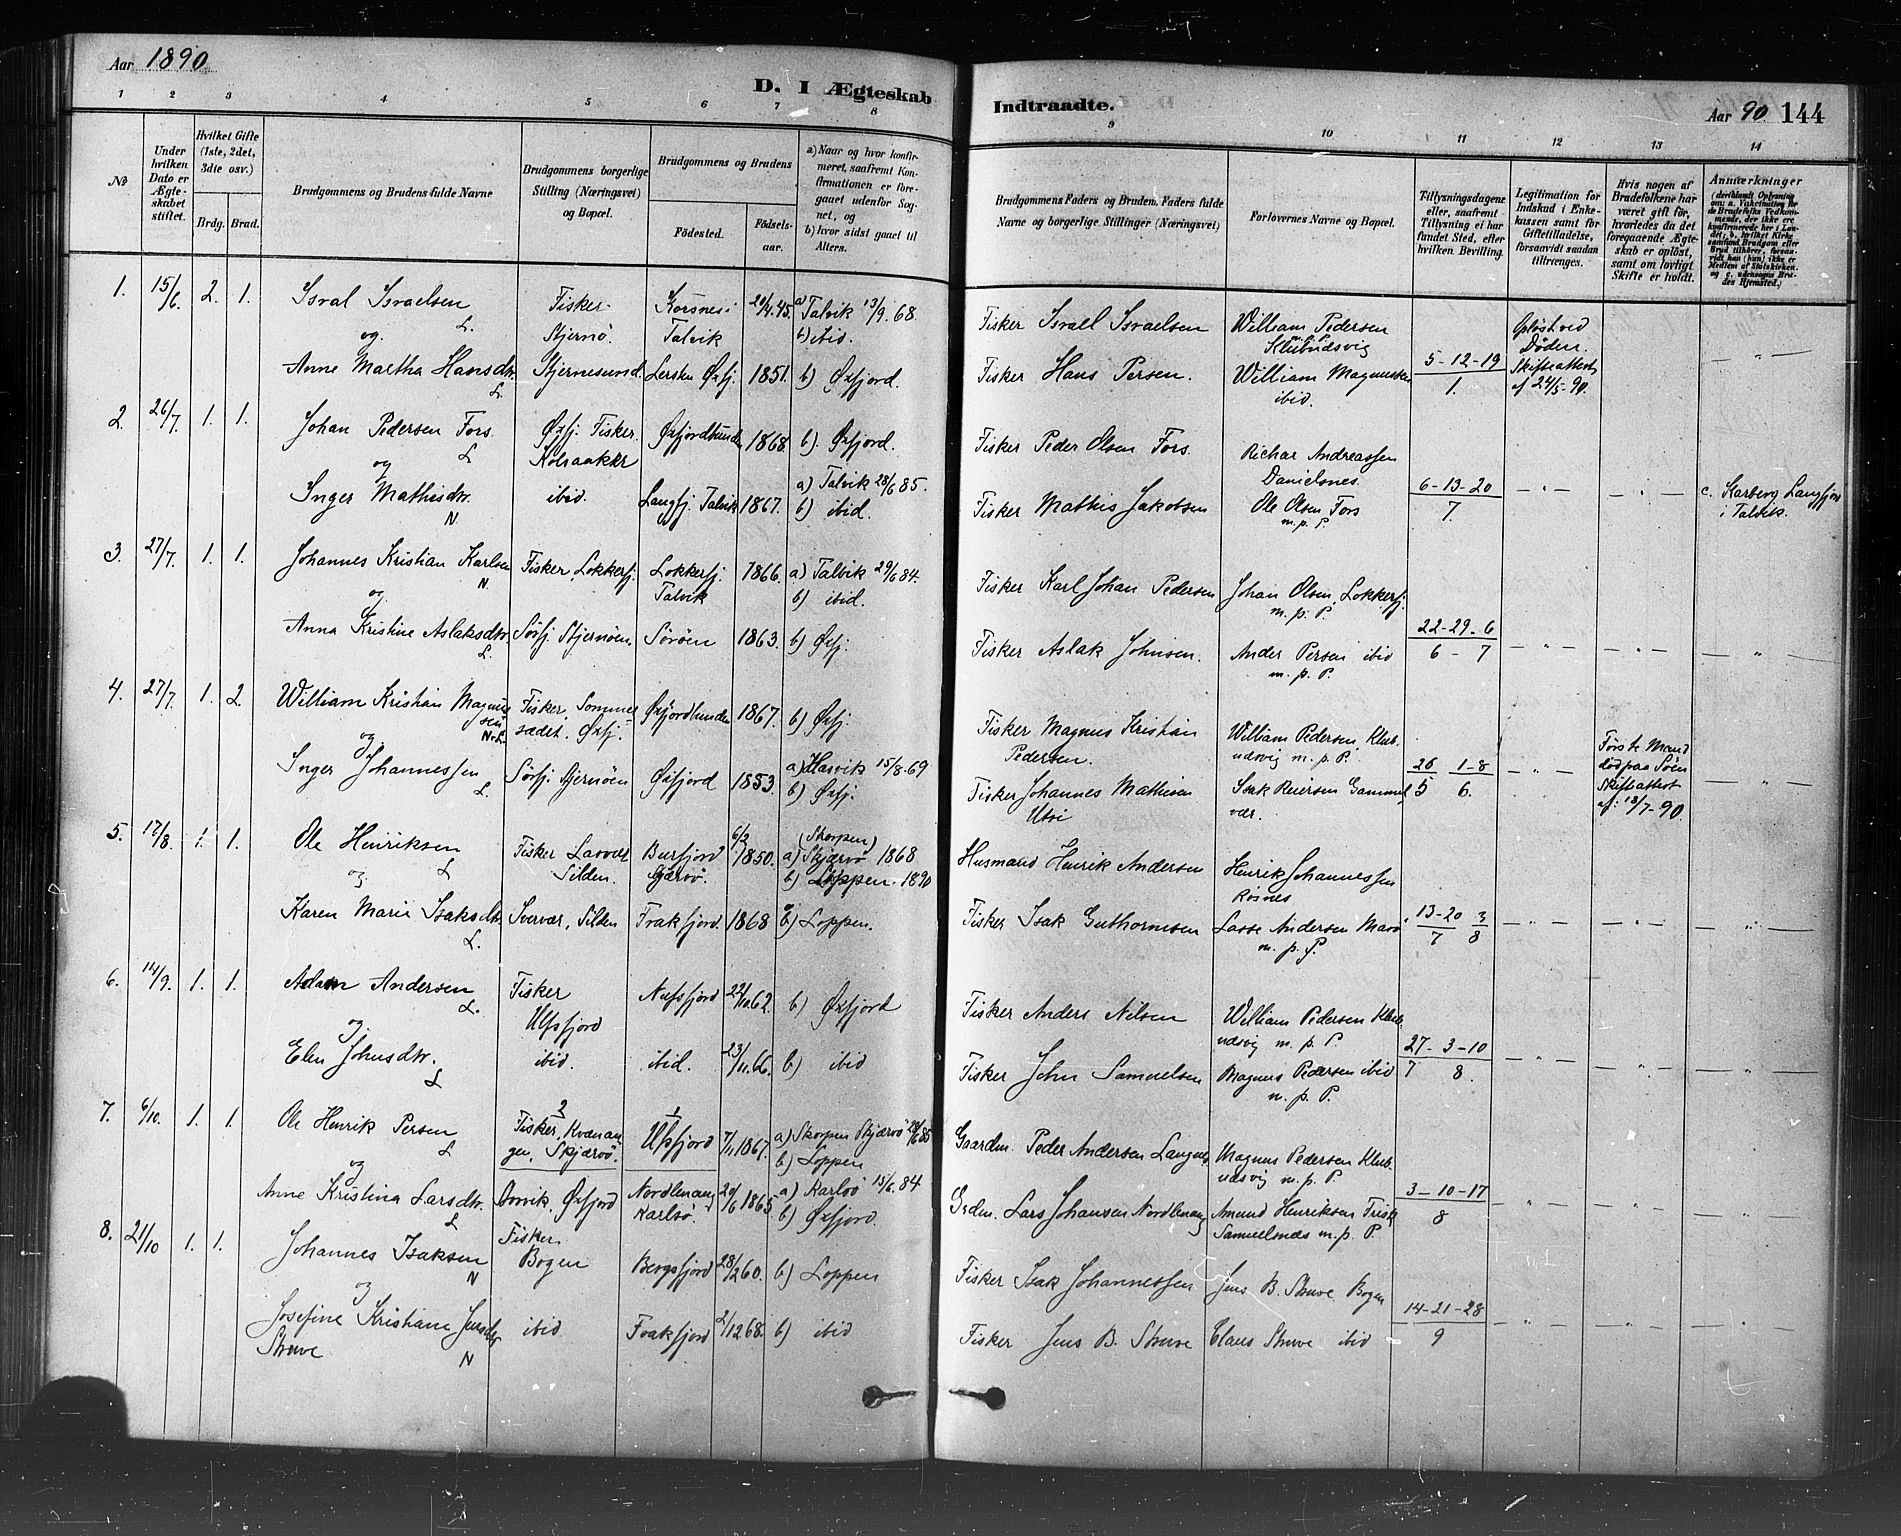 Aar 1890
D. I Ægteskab
Indtraadte.
Aar 90 144
1 2 3 4 5 6 7 8
9 10 11 12 13 14
No
Under hvilken Dato er Ægteskabet stiftet.
Hvilket Gifte (1ste, 2det, 3dte osv.)
Brdg. Brud.
Brudgommens og Brudens fulde Navne
Brudgommens borgerlige Stilling (Næringsvei) og Bopæl.
Brudgommens og Brudens
Födested.
Födselsaar.
a) Naar og hvor konfirmeret, saafremt Konfirmationen er foregaaet udenfor Sognet, og
b) hvor sidst gaaet til Alters.
Brudgommens Faders og Brudens Faders fulde Navne og borgerlige Stillinger (Næringsvei)
Forlovernes Navne og Bopæl.
Tillysningsdagene eller, saafremt Tillysning ei har fundet Sted, efter hvilken Bevilling.
Legitimation for Indskud i Enkekassen samt for Giftetilladelse, forsaavidt saadan tiltrænges.
Hvis nogen af Brudefolkene har været gift för, hvorledes da det foregaaende Ægteskab er oplöst, samt om lovligt Skifte er holdt.
Anmærkninger
1. 15/6. 2. 1. Isral Israelsen L. Fisker Stjernö. Korsnes i Talvik 45. a) Talvik 13/9. 68. b) ibid.
Fisker Israel Israelsen William Pedersen Klubudsvig Oplöst ved Döden. Skifteattest af 24/5-90.
og
Anne Martha Hansdtr. L. Stjernesund. Öxfj. 1851. b) Öxfjord.
Fisker Hans Persen. William Magnussen ibid. 5-12-19 1.
2. 26/7. 1. 1. Johan Pedersen Fors. L. Öxfj. Fisker. Öxfjordbunden 1868. b) Öxfjord.
Fisker Peder Olsen Fors. Richar Andreassen Danielsnes.
og
Inger Mathisdtr. N ibid. Langfj. Talvik 1867. a) Talvik 28/6 85. b) ibid.
Fisker Mathis Jakobsen Ole Olsen Fors m. p. P. 6-13-20 7. c. Langfjord i Talvik.
3. 27/7. 1. 1. Johannes Kristian Karlsen N. Fisker, Lokkerfj. Lokkerfj. Talvik 1866. a) Talvik 29/6 84. b) ibid.
Fisker Karl Johan Pedersen Johan Olsen, Lokkerfj. m. p. P.
og
Anna Kristine Aslaksdtr. L. Sörfj. Stjernöen Söröen 1863. b) Öxfj.
Fisker Aslak Johnsen. Ander Persen ibid m. p. P. 22-29-6 6 - 7
4. 27/7. 1. 2. William Kristian Magnussen N.L. Fisker, Öxfj. Öxfjordbunden 1867. b) Öxfj.
Fisker Magnus Kristian Pedersen. William Pedersen, Klubudsvig m. p. P. Förste Mand död paa Söen Skifteattest af 18/7-90.
og
Inger Johannessen L. Sörfj. Stjernöen Öxfjord 1853. a) Hasvik 15/8. 69 b) Öxfj.
Fisker Johannes Mathisen Utvi Isak Reiersen Gammelvær. 26 1-8 5 6.
5. 17/8. 1. 1. Ole Henriksen L Fisker Silden. Burfjord Skjærvö. 1850. (Skorpen) a) Skjærvö 1868 b) Loppen. 1890
Husmand Henrik Andersen Henrik Johannessen
og
Karen Marie Isaksdtr. L. Svervær, Silden Frakfjord. 1868 b) Loppen.
Fisker Isak Guthormsen Lasse Andersen m. p. P. 13-20 3 7 8
6. 14/9. 1. 1. Adam Andersen L. Fisker Ulfsfjord Nufsfjord 62. b) Öxfjord
Fisker Anders Nilsen William Pedersen Klubudsvig m. p. P.
og
Elen Johnsdtr. L ibid. ibid. 23/11.66. b) ibid
Fisker John Samuelsen Magnus Pedersen ibid m. p. P. 27-3-10 7 8.
7. 6/10. 1. 1. Ole Henrik Persen L Fisker, Kvænangen, Skjærvö. Ulfsfjord 7/11 1867. a) Skorpen Skjærvö 85 b) Loppen
Gaardm. Peder Andersen Langnes. Magnus Pedersen Klubudsvig m. p. P.
og
Anne Kristina Larsdtr. L Öxfjord Karlsö. 1865. a) Karlsö 15/6. 84 b) Öxfjord.
Grdm. Lars Johansen Amund Henriksen m. p. P. 3-10-17 8
8. 21/10 1. 1. Johannes Isaksen N Fisker Bogen Bergsfjord 28/12 60. b) Loppen
Fisker Isak Johannessen Jens B. Struve Bogen
og
Josefine Kristiane Jensdtr Struve N ibid Frakfjord 2/12 68. b) ibid
Fisker Jens B. Struve Claus Struve ibid 14-21-28 9